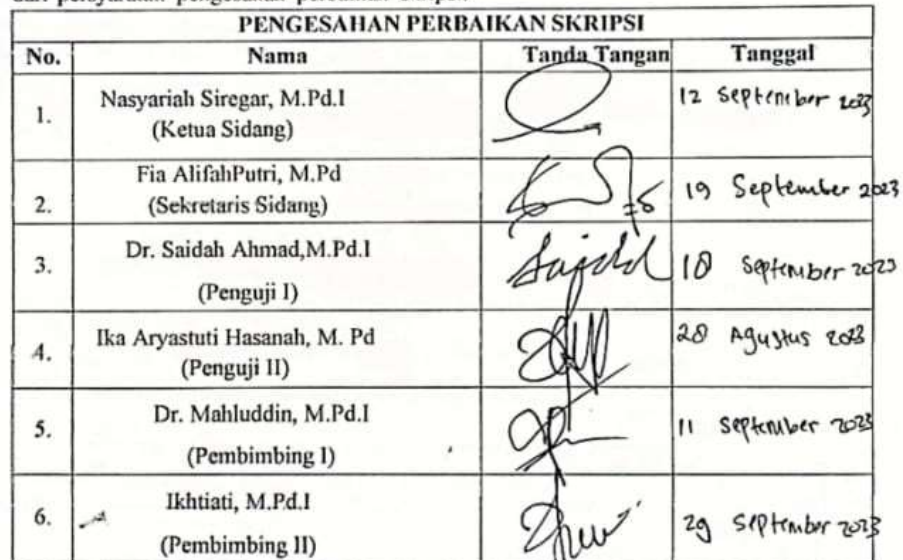 PENGESAHAN PERBAIKAN SKRIPSI
No. Nama Tanda Tangan Tanggal
1. Nasyariah Siregar, M.Pd.I
(Ketua Sidang)
12 September 2023
2. Fia AlifahPutri, M.Pd
(Sekretaris Sidang)
19 September 2023
3. Dr. Saidah Ahmad,M.Pd.I
(Penguji I)
September 2023
4. Ika Aryastuti Hasanah, M. Pd
(Penguji II)
28 Agustus 2023
5. Dr. Mahluddin, M.Pd.I
(Pembimbing I)
11 September 2023
6. Ikhtiati, M.Pd.I
(Pembimbing II)
29 September 2023